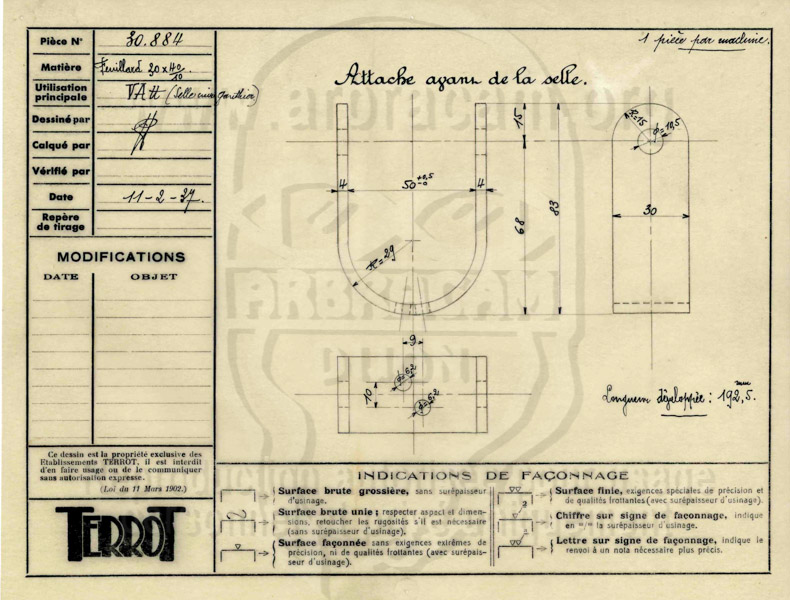 Pièce N° 30.884
Matière Feuillard 30 x 40/10
Utilisation principale VA tt (Selle
Dessiné par
Calqué par
Vérifié par
Date 11-2-37.
Repère de tirage
MODIFICATIONS
DATE OBJET
Ce dessin est la propriété exclusive des
Etablissements TERROT, il est interdit
d'en faire usage ou de le communiquer
sans autorisation expresse.
(Loi du 11 Mars 1902.)
TERROT
1 pièce par machine.
Attache avant de la selle.
15
R=15
φ=10,5
4
50 +0,5 -0
4
68
83
30
R=29
9
φ=6,2
10
φ=6,2
Longueur développée : 192,5. mm
ARBRACAM
INDICATIONS DE FAÇONNAGE
Surface brute grossière, sans surépaisseur
d'usinage.
Surface brute unie ; respecter aspect et dimen-
sions, retoucher les rugosités s'il est nécessaire
(sans surépaisseur d'usinage).
Surface façonnée sans exigences extrêmes de
précision, ni de qualités frottantes (avec surépais-
seur d'usinage).
Surface finie, exigences spéciales de précision et
de qualités frottantes (avec surépaisseur d'usinage).
Chiffre sur signe de façonnage, indique
en m/m la surépaisseur d'usinage.
Lettre sur signe de façonnage, indique le
renvoi à un nota nécessaire plus précis.